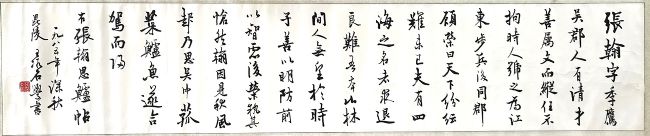 張翰字季鷹
吳郡人有清才
善屬文而縱任不
拘時人號之為江
東步兵後同郡
顧榮曰天下紛紜
難未已夫有四
海之名者求退
良難吾本山林
間人無望於時
子善以明防前
以智慮後榮執其
愴然翰因見秋風
起乃思吳中菰
菜鱸魚遂命
駕而歸
右張翰思鱸帖
一九八三年深秋
石學書